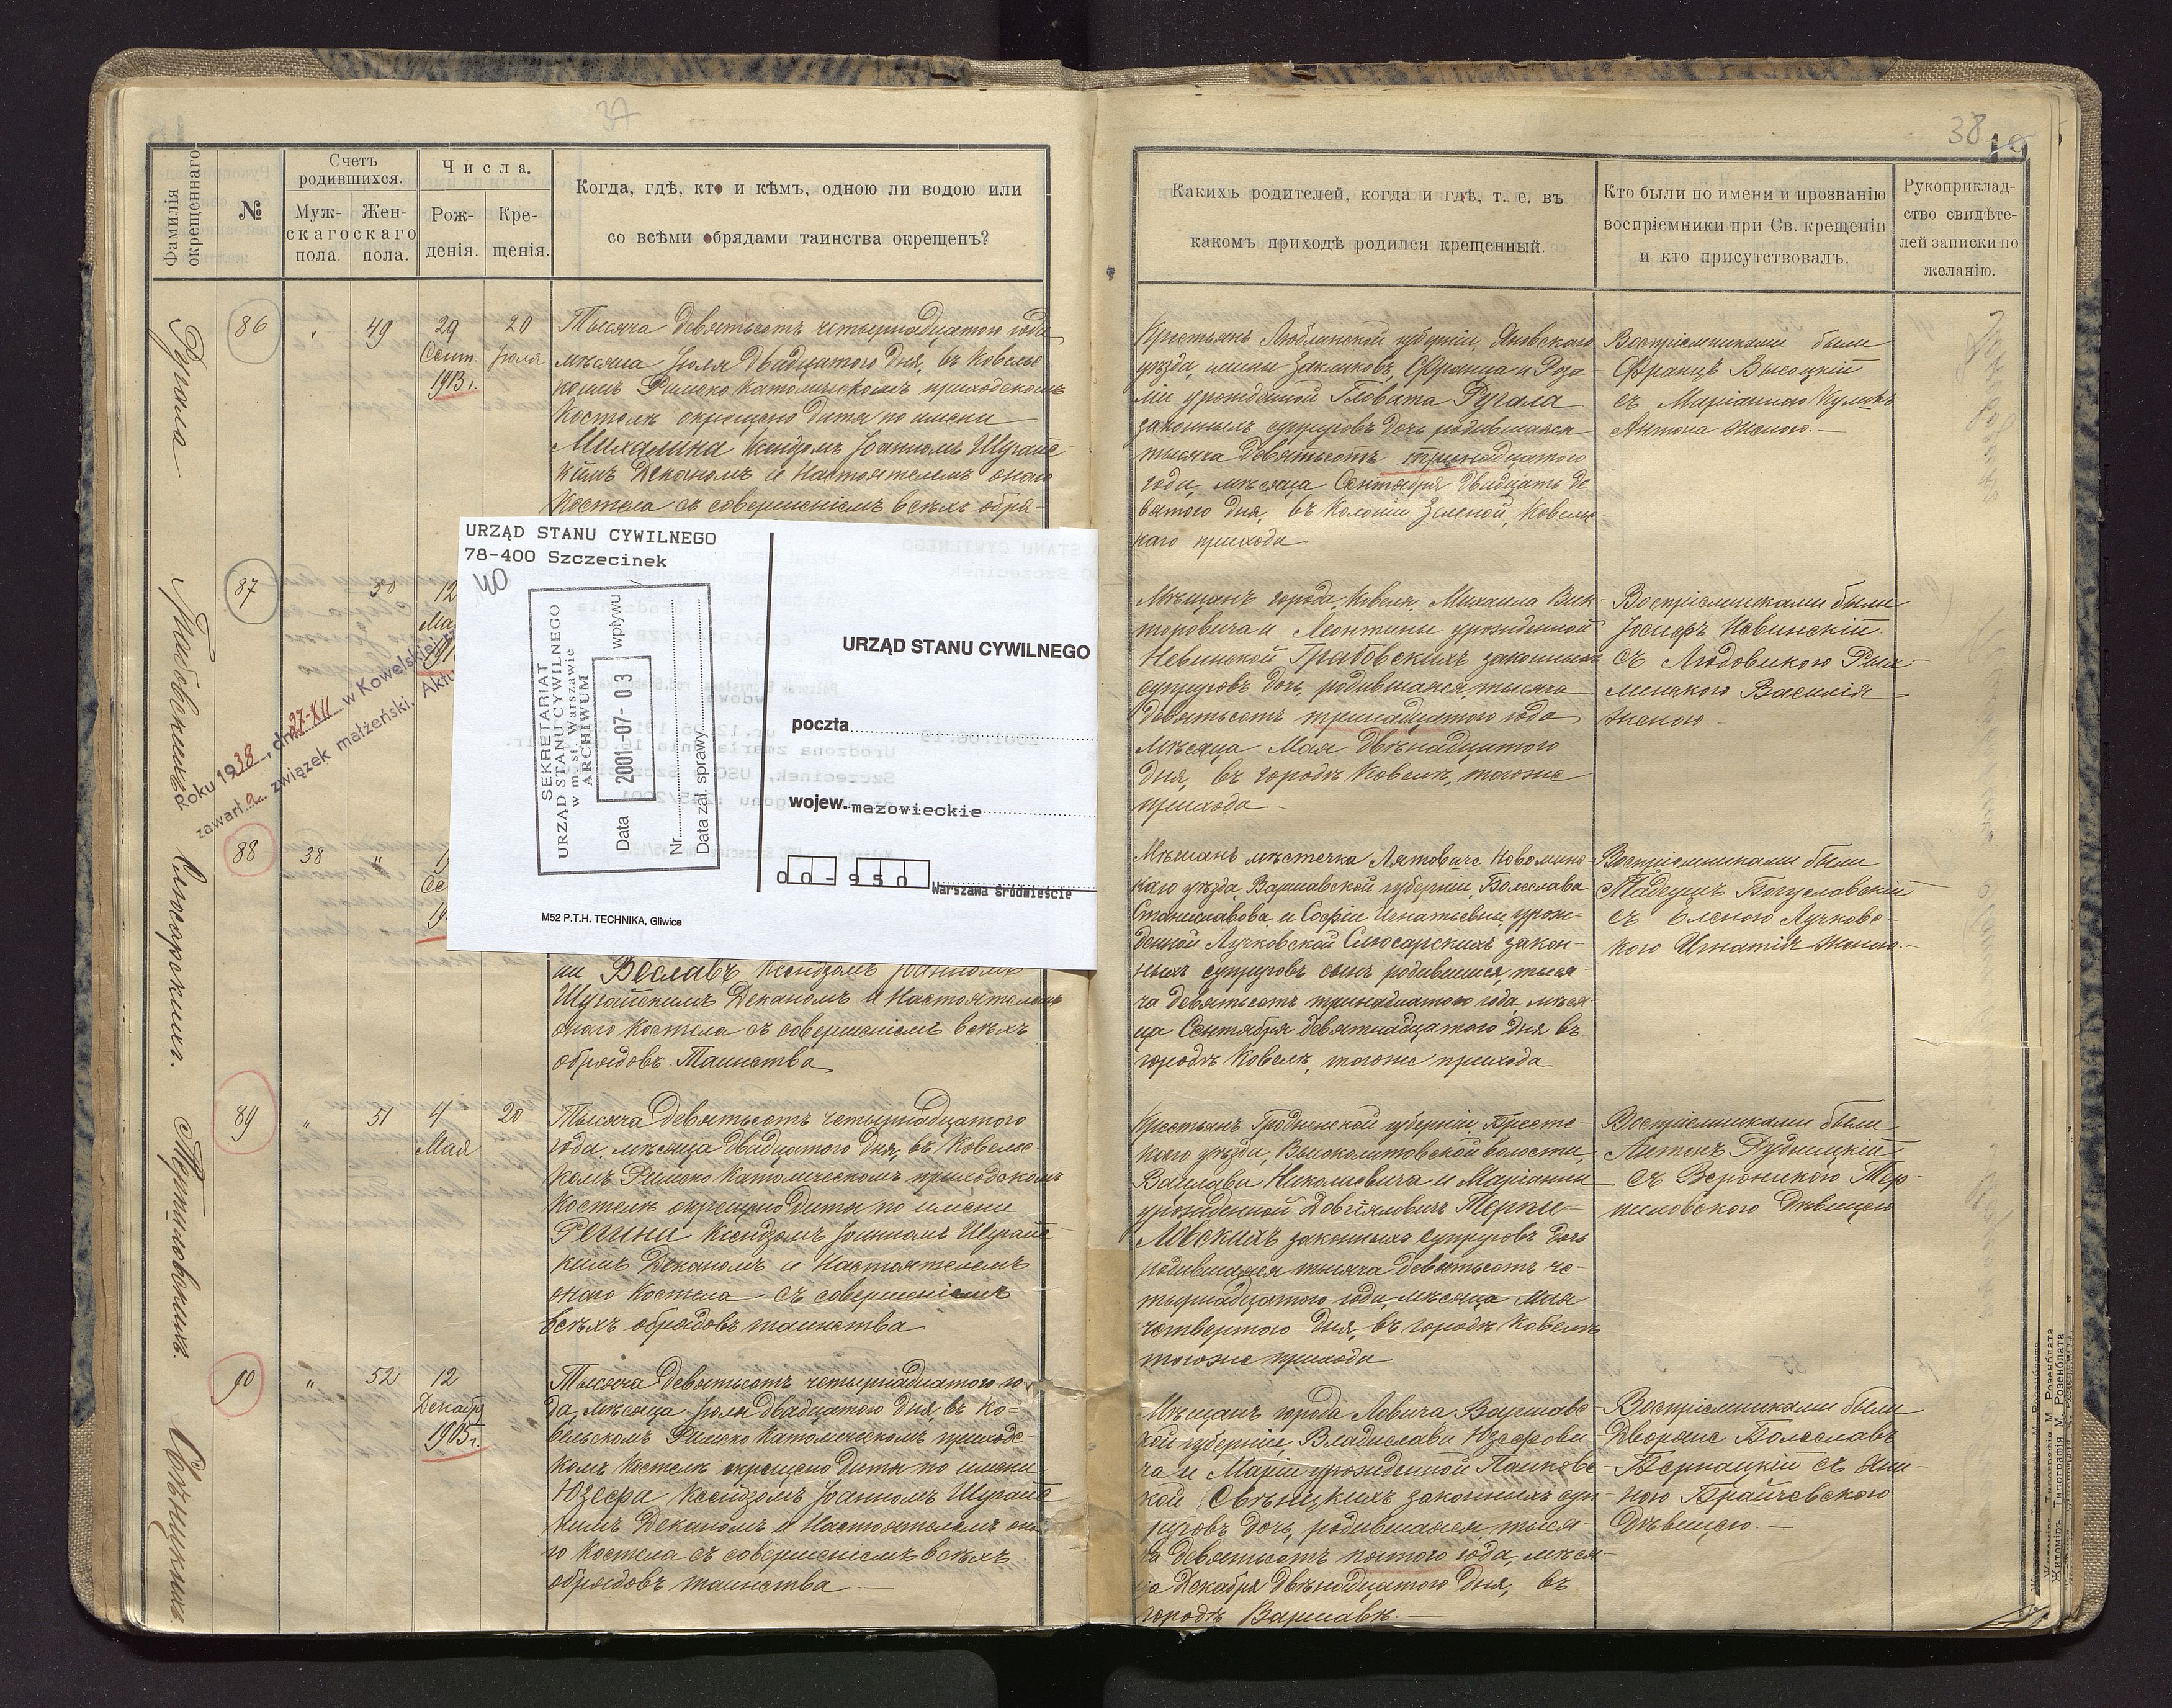 37
Фамилія окрещеннаго
№
Счетъ родившихся.
Муж-
скаго
пола.
Жен-
скаго
пола.
Числа.
Рож-
денія.
Кре-
щенія.
Когда, гдѣ, кто и кѣмъ, одною ли водою или
со всѣми обрядами таинства окрещенъ?
Ругала
86
"
49
29
Сент.
1913 г.
20
Іюля
Тысяча девятьсотъ четырнадцатого года
мѣсяца Іюля двадцатого дня, въ Ковельс
комъ Римско Католическомъ приходскомъ
Костелѣ окрещено дитя по имени
Михалина Ксендзомъ Іоанномъ Шугайс
кимъ Деканомъ и Настоятелемъ онаго
Костела съ совершеніемъ всѣхъ обря-
87
50
12
Ма
roku 1938, dn. 27-XII w Kowelskiej
zawarła związek małżeński. Aktu
88
38
"
Слюсарскихъ.
ни Веславъ Ксендзомъ Іоанномъ
Шугайскимъ Деканомъ и Настоятелемъ
онаго Костела съ совершеніемъ всѣхъ
обрядовъ Таинства
89
"
51
4
Мая
20
Терпиловскихъ.
Тысяча девятьсотъ четырнадцатого
года, мѣсяца двадцатого дня, въ Ковельс-
комъ Римско Католическомъ приходскомъ
Костелѣ окрещено дитя по имени
Регина Ксендзомъ Іоанномъ Шугайс
кимъ Деканомъ и Настоятелемъ
онаго Костела съ совершеніемъ
всѣхъ обрядовъ таинства
90
"
52
12
Декабр
1905 г.
Свѣницкихъ.
Тысяча девятьсотъ четырнадцатого го-
да, мѣсяца Іюля двадцатого дня, въ Ко-
вельскомъ Римско Католическомъ приходс-
комъ Костелѣ окрещено дитя по имени
Юзефа Ксендзомъ Іоанномъ Шугайс
кимъ Деканомъ и Настоятелемъ она-
го Костела съ совершеніемъ всѣхъ
обрядовъ таинства —
URZĄD STANU CYWILNEGO
78-400 Szczecinek
40
SEKRETARIAT
URZĄD STANU CYWILNEGO
w m. st. Warszawie
ARCHIWUM
Data 2001-07-03 wpływu
Nr
Data zał. sprawy
M52 P.T.H. TECHNIKA, Gliwice
URZĄD STANU CYWILNEGO
poczta
wojew. mazowieckie
00-950 Warszawa Śródmieście
38
19
Какихъ родителей, когда и гдѣ, т. е. въ
какомъ приходѣ родился крещенный.
Кто были по имени и прозванію
воспріемники при Св. крещеніи
и кто присутствовалъ.
Рукоприклад-
ство свидѣте-
лей записки по
желанію.
Крестьянъ Люблинской губерніи, Яновского
уѣзда, гмины Закликовъ, Франца и Роза-
ліи урожденной Гловата Ругала
законныхъ супруговъ дочь родившаяся
тысяча девятьсотъ тринадцатого
года, мѣсяца Сентября двадцать де
вятого дня, въ Колоніи Зеленой, Ковельс
каго прихода
Воспріемниками были
Францъ Высоцкій
съ Маріанною Кулик
Антона женою. —
Мѣщанъ города Ковеля, Михаила Вик-
торовича и Леонтины урожденной
Невинской Грабовскихъ законныхъ
супруговъ дочь, родившаяся, тысяча
девятьсотъ тринадцатого года
мѣсяца Мая двѣнадцатого
дня, въ городѣ Ковелѣ, тогоже
прихода —
Воспріемниками были
Іосифъ Невинскій
съ Людовикою
Василія
женою —
Мѣщанъ мѣстечка Лятовичъ Новоминс-
каго уѣзда, Варшавской губерніи, Болеслава
Станиславова и Софіи Игнатьевны урож-
денной Лучковской Слюсарскихъ закон-
ныхъ супруговъ сынъ родившійся, тыся-
ча девятьсотъ тринадцатого года, мѣся-
ца Сентября девятнадцатого дня въ
городѣ Ковелѣ, тогоже прихода
Воспріемниками были
Тадеушъ Богуславскій
съ Еленою Лучковс-
кого Игнатія женою. —
Крестьянъ Гродненской губерніи, Брестс-
каго уѣзда, Высоколитовской волости,
Вацлава Николаевича и Маріанны
урожденной Довгяловичъ Терпи-
ловскихъ законныхъ супруговъ дочь
родившаяся тысяча девятьсотъ че-
тырнадцатого года, мѣсяца Мая
четвертого дня, въ городѣ Ковелѣ
тогоже прихода
Воспріемниками были
Антонъ Рудницкій
съ Вероникою Тер-
пиловского дѣвицею
Мѣщанъ города Ловича Варшавс
кой губерніи, Владислава Юзефови-
ча и Маріи урожденной Панковс
кой Свѣницкихъ законныхъ суп-
руговъ дочь, родившаяся, тыся-
ча девятьсотъ пятого года, мѣся-
ца Декабря двѣнадцатого дня, въ
городѣ Варшавѣ. —
Воспріемниками были
Дворяне Болеславъ
Бернацкій съ Ян-
ною Брайчевского
дѣвицею. —
Житомiръ. Типографія М. Розенблата